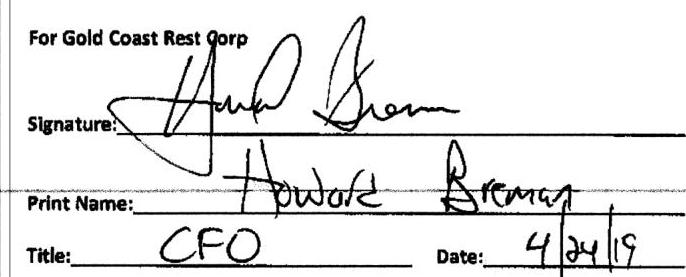 For Gold Coast Rest Corp
Signature: Howard Breman
Print Name: Howard Breman
Title: CFO Date: 4/24/19